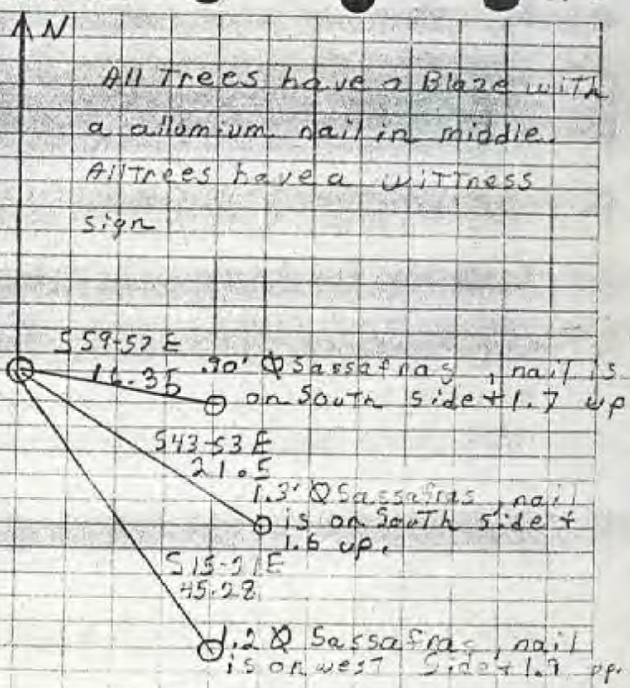 N
All Trees have a Blaze with
a allumium nail in middle.
All Trees have a wittness
sign
S 59-57 E
16.35 .90' Ø Sassafras, nail is
on South side + 1.7 up
S43-53 E
21.5
1.3' Ø Sassafras, nail
is on South side +
1.6 up.
E
45.28
1.2 Ø Sassafras, nail
is on west side + up.